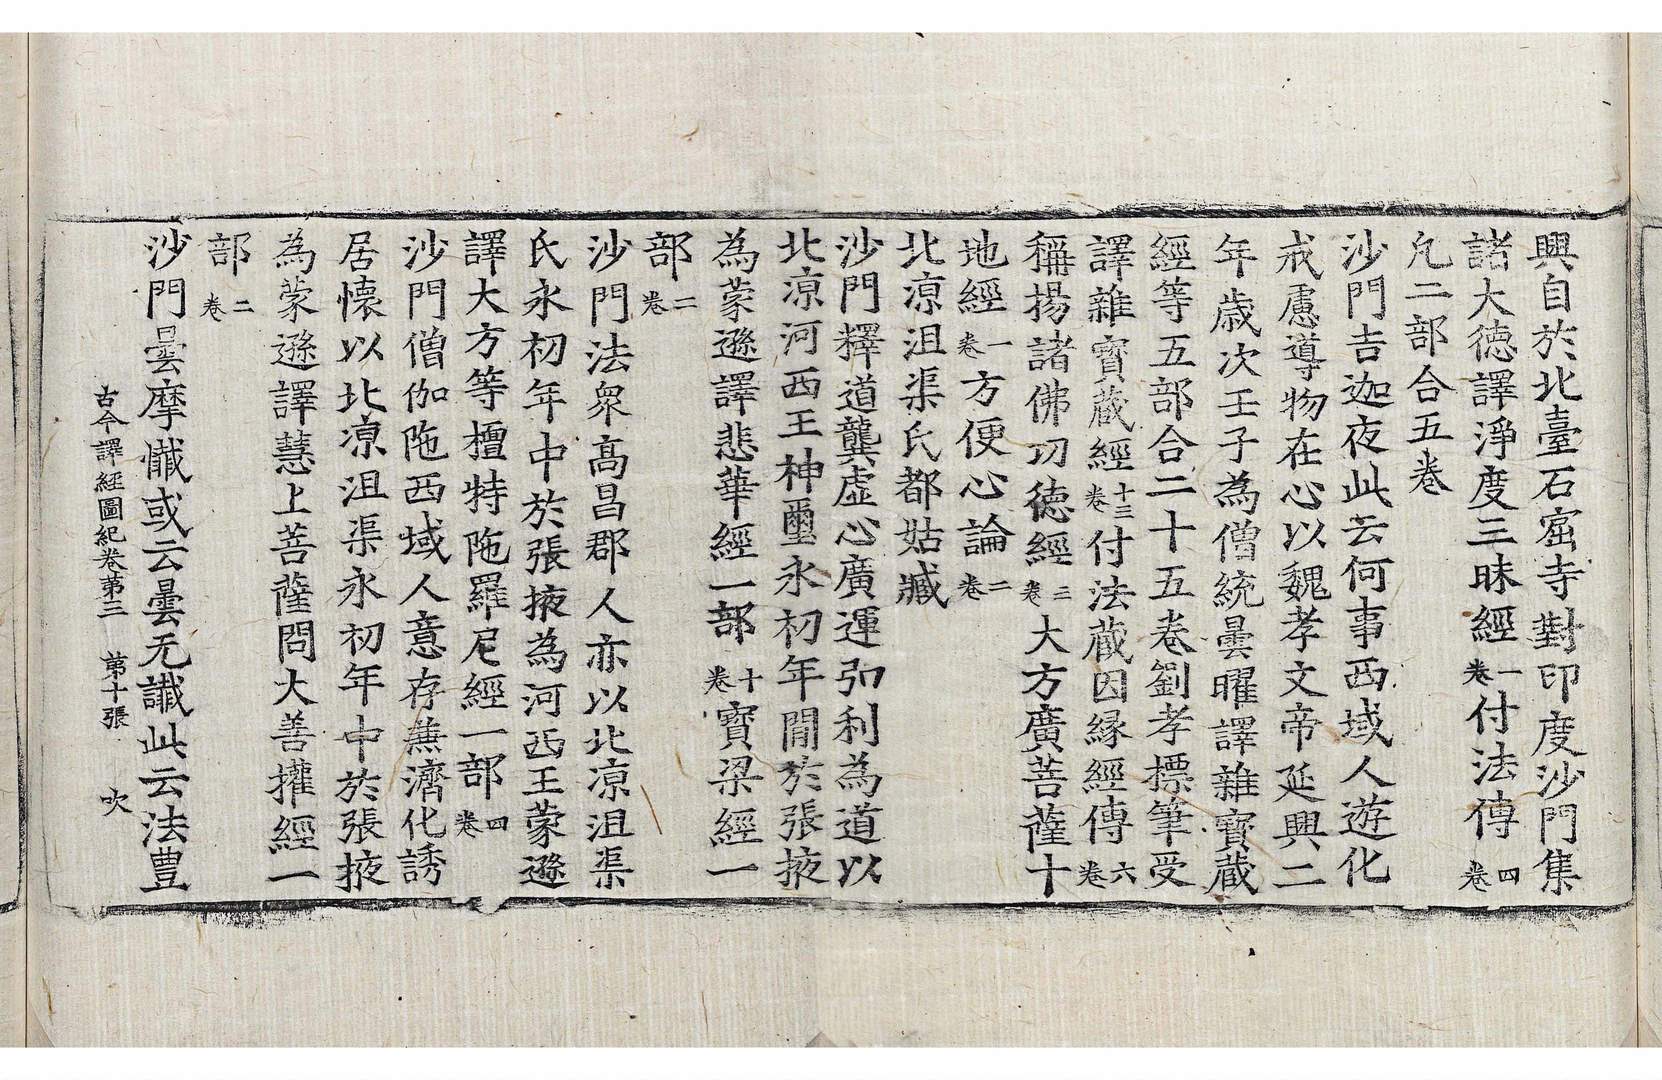 興自於北臺石窟寺對印度沙門集
諸大德譯淨度三昧經一卷付法傳四卷
凡二部合五卷
沙門吉迦夜此云何事西域人遊化
戒慮導物在心以魏孝文帝延興二
年歲次壬子為僧統曇曜譯雜寶藏
經等五部合二十五卷劉孝摽筆受
譯雜寶藏經十三卷付法藏因緣經傳六卷
稱揚諸佛功德經三卷大方廣菩薩十
地經一卷方便心論二卷
北涼沮渠氏都姑臧
沙門釋道龔虛心廣運弘利為道以
北涼河西王神璽永初年閒於張掖
為蒙遜譯悲華經一部十卷寶梁經一
部二卷
沙門法眾高昌郡人亦以北涼沮渠
氏永初年中於張掖為河西王蒙遜
譯大方等檀特陁羅尼經一部四卷
沙門僧伽陁西域人意存兼濟化誘
居懷以北涼沮渠永初年中於張掖
為蒙遜譯慧上菩薩問大善攉經一
部二卷
沙門曇摩懺或云曇无讖此云法豊
古今譯經圖紀卷第三 第十張 吹